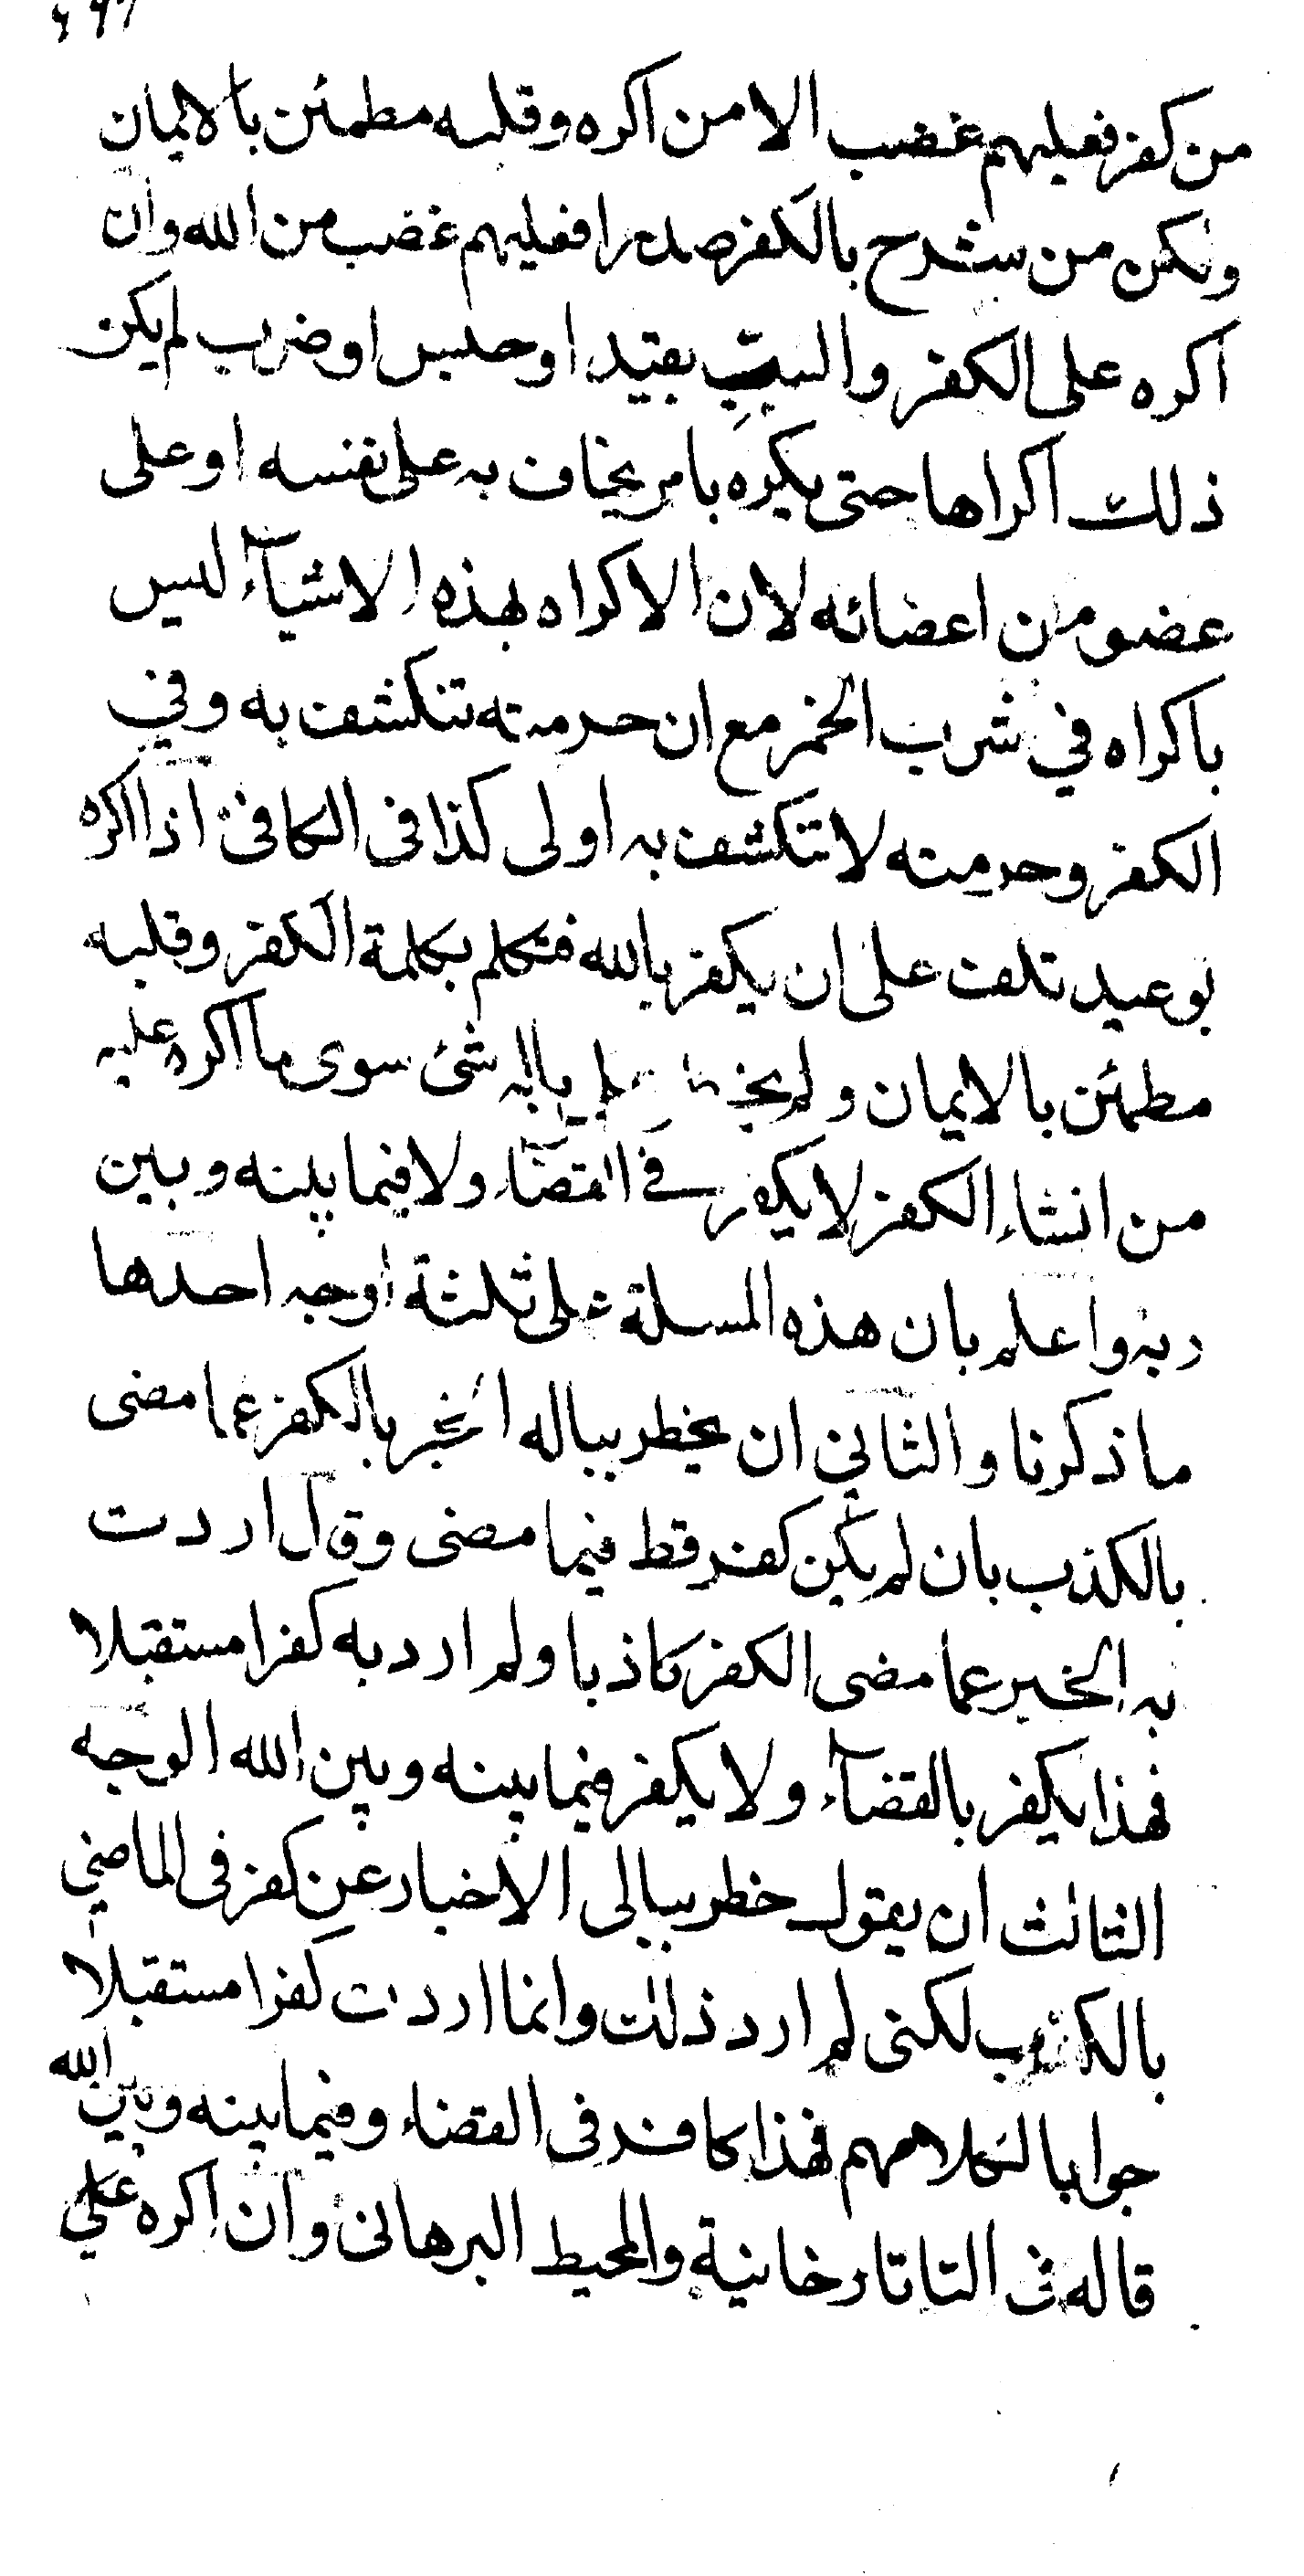 من كفر فعليهم غضب الا من اكره وقلبه مطمئن بالايمان
ولكن من شرح بالكفر صدرا فعليهم غضب من الله وان
اكره على الكفر والسب بقيد او حبس او ضرب لم يكن
ذلك اكراها حتى يكره بامر يخاف به على نفسه او على
عضو من اعضائه لان الاكراه بهذه الاشياء ليس
باكراه في شرب الخمر مع ان حرمته تنكشف به وفي
الكفر وحرمته لا تنكشف به اولى كذا فى الكافى اذا اكره
بوعيد تلف على ان يكفر بالله فتكلم بكلمة الكفر وقلبه
مطمئن بالايمان ولم يخطر بباله شئ سوى ما اكره عليه
من انشاء الكفر لا يكفر في القضاء ولا فيما بينه وبين
ربه واعلم بان هذه المسلة على ثلثة اوجه احدها
ما ذكرنا والثاني ان يخطر بباله الخبر بالكفر عما مضى
بالكذب بان لم يكن كفر قط فيما مضى وقال اردت
به الخبر عما مضى الكفر كاذبا ولم ارد به كفرا مستقبلا
فهذا يكفر بالقضاء ولا يكفر فيما بينه وبين الله الوجه
الثالث ان يقول خطر ببالى الاخبار عن كفر فى الماضي
بالكذب لكنى لم ارد ذلك وانما اردت كفرا مستقبلا
جوابا لكلامهم فهذا كافر فى القضاء وفيما بينه وبين الله
قاله فى التاتارخانية والمحيط البرهانى وان اكره على